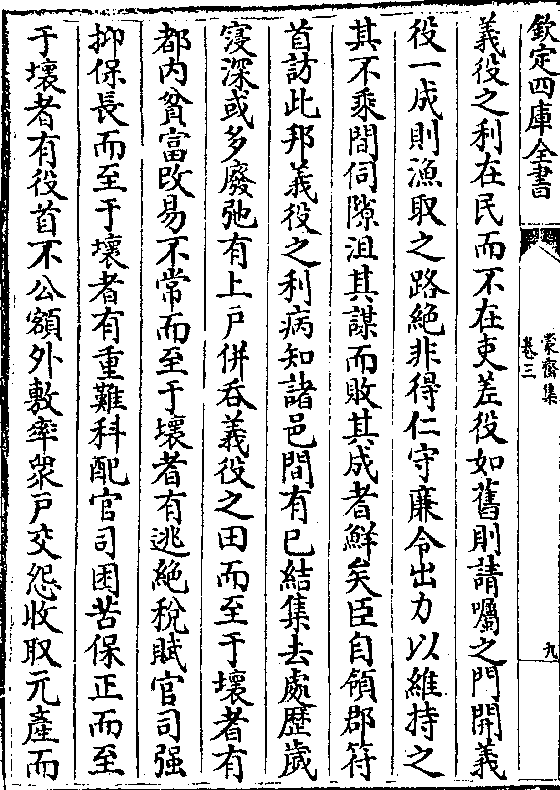 欽定四庫全書
蒙齋集
卷三
九
義役之利在民而不在吏差役如舊則請囑之門開義
役一成則漁取之路絶非得仁守廉令出力以維持之
其不乘間伺隙沮其謀而敗其成者鮮矣臣自領郡符
首訪此邦義役之利病知諸邑間有已結集去處歴歲
寖深或多廢弛有上戸併呑義役之田而至于壞者有
都内貧富改易不常而至于壞者有逃絶稅賦官司强
抑保長而至于壞者有重難科配官司困苦保正而至
于壞者有役首不公額外敷率衆戸交怨收取元產而